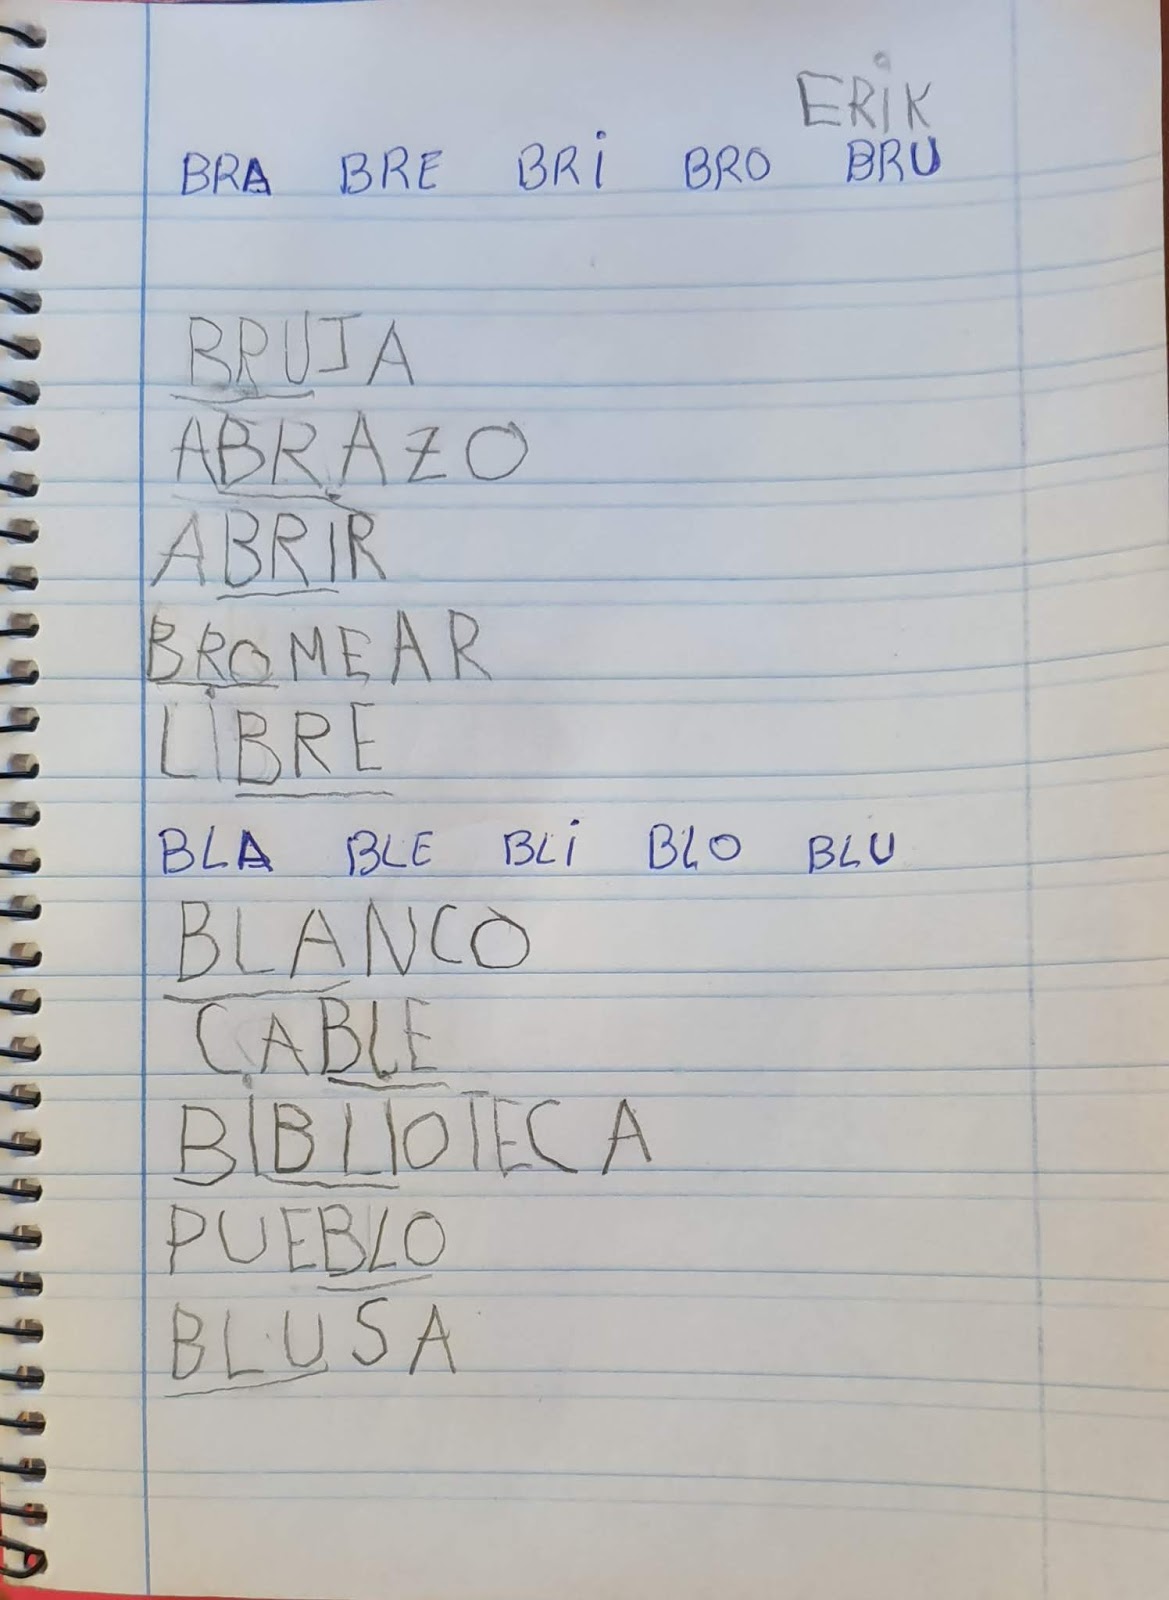 ERiK
BRA BRE BRi BRO BRU
BRUJA
ABRAZO
ABRIR
BROMEAR
LiBRE
BLA BLE BLi BLO BLU
BLANCO
CABLE
BiBLIOTECA
PUEBLO
BLUSA